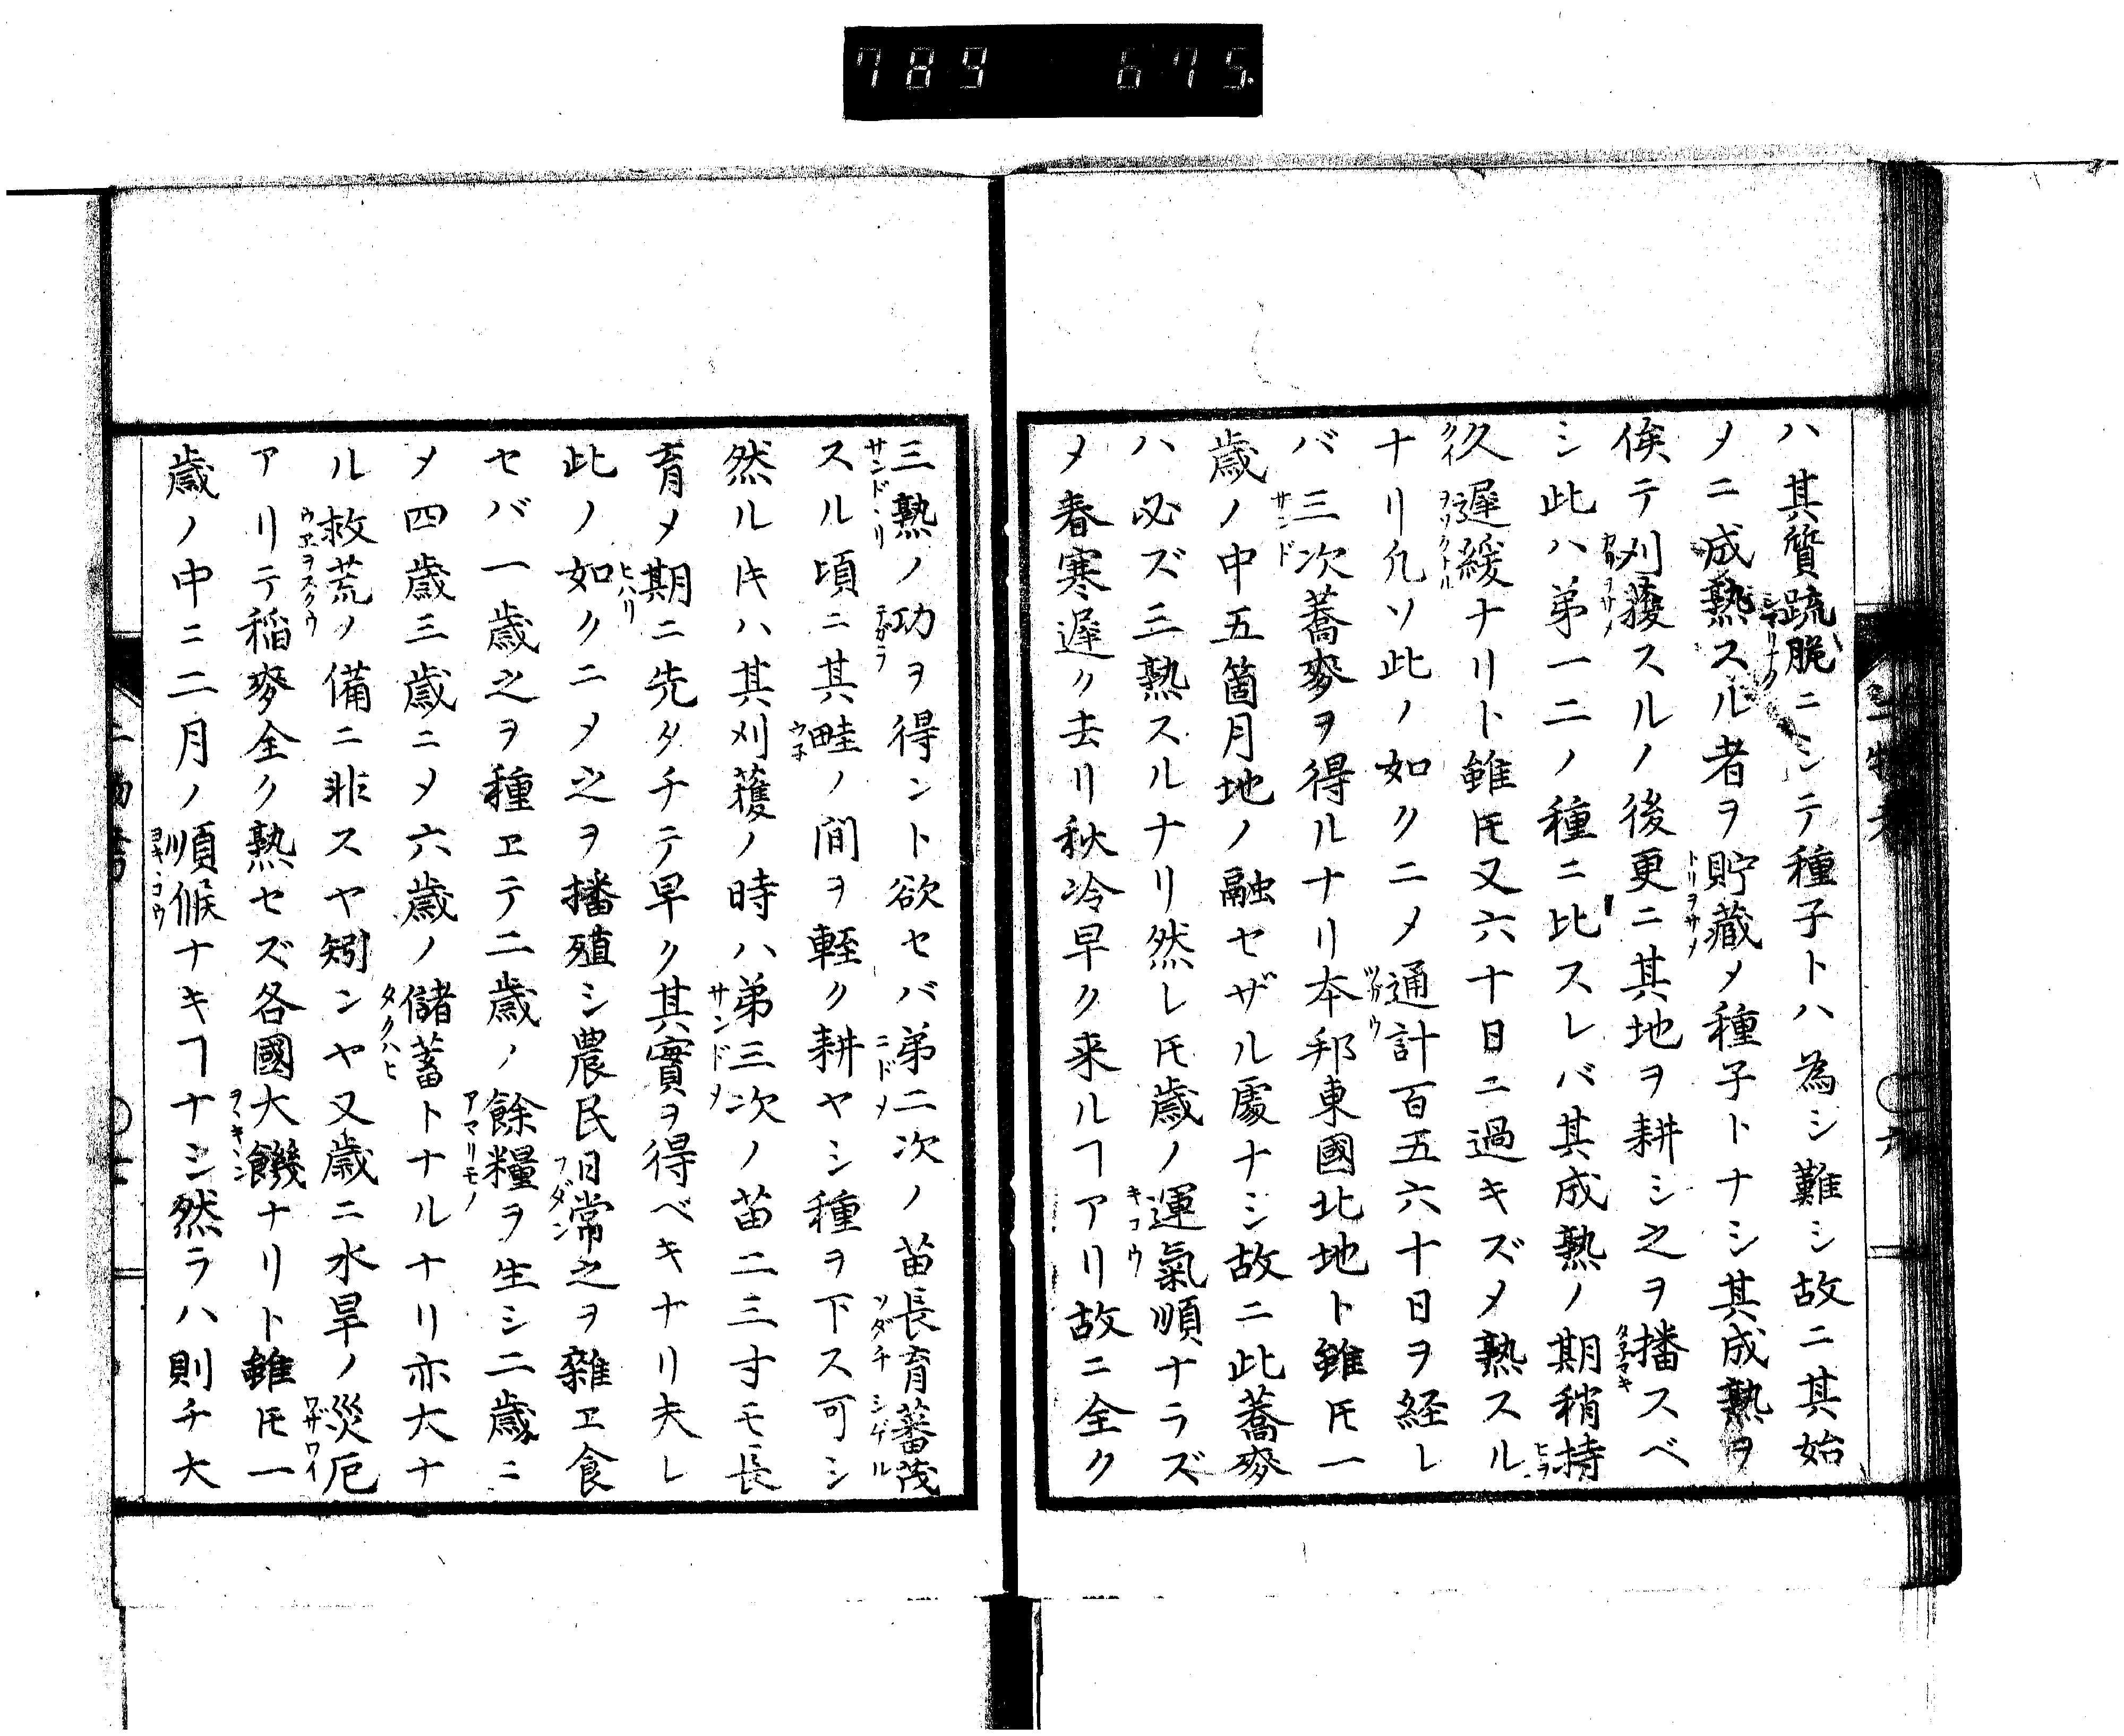 789 675
ハ其質疏脆ニシテ種子トハ為シ難シ故ニ其始
メニ成熟スル者ヲ貯蔵メ種子トナシ其成熟ヲ
俟テ刈穫スルノ後更ニ其地ヲ耕シ之ヲ播スベ
シ此ハ苐一二ノ種ニ比スレバ其成熟ノ期稍持
久遅緩ナリト雖𪜈又六十日ニ過キズメ熟スル
ナリ凢ソ此ノ如クニメ通計百五六十日ヲ経レ
バ三次蕎麥ヲ得ルナリ本邦東國北地ト雖𪜈一
歳ノ中五箇月地ノ融セザル處ナシ故ニ此蕎麥
ハ必ズ三熟スルナリ然レ𪜈歳ノ運氣順ナラズ
メ春寒遅ク去リ秋冷早ク来ルヿアリ故ニ全ク
三熟ノ功ヲ得ント欲セバ苐二次ノ苗長育蕃茂
スル頃ニ其畦ノ間ヲ軽ク耕ヤシ種ヲ下ス可シ
然ルトキハ其刈穫ノ時ハ苐三次ノ苗二三寸モ長
育メ期ニ先タチテ早ク其實ヲ得ベキナリ夫レ
此ノ如クニメ之ヲ播殖シ農民日常之ヲ雜ヱ食
セバ一歳之ヲ種ヱテ二歳ノ餘糧ヲ生シ二歳ニ
メ四歳三歳ニメ六歳ノ儲蓄トナルナリ亦大ナ
ル救荒ノ備ニ非スヤ矧ンヤ又歳ニ水旱ノ災厄
アリテ稲麥全ク熟セズ各國大饑ナリト雖𪜈一
歳ノ中ニ二月ノ順候ナキヿナシ然ラハ則チ大